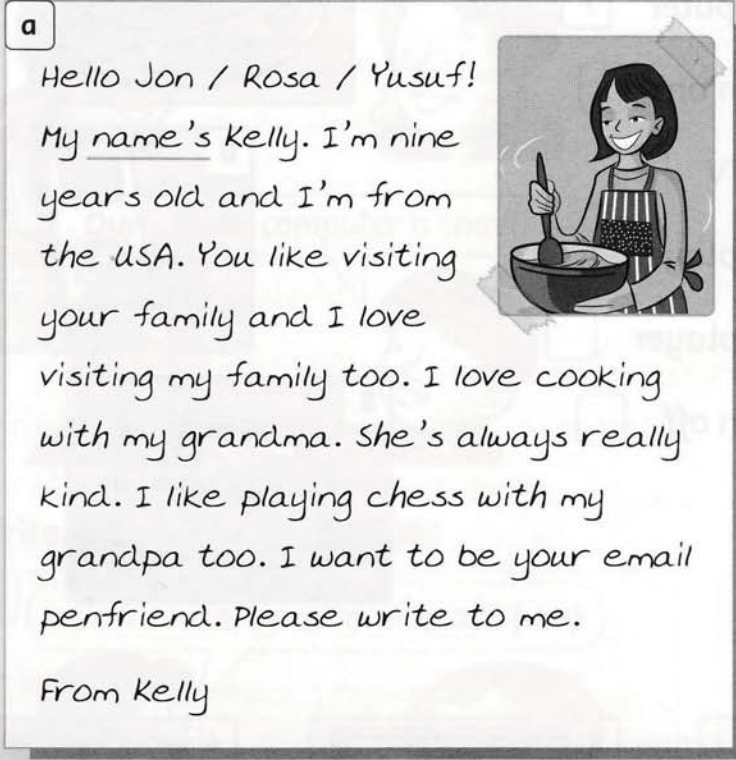 a
Hello Jon / Rosa / Yusuf!
My name's Kelly. I'm nine
years old and I'm from
the USA. You like visiting
your family and I love
visiting my family too. I love cooking
with my grandma. She's always really
kind. I like playing chess with my
grandpa too. I want to be your email
penfriend. Please write to me.
From Kelly